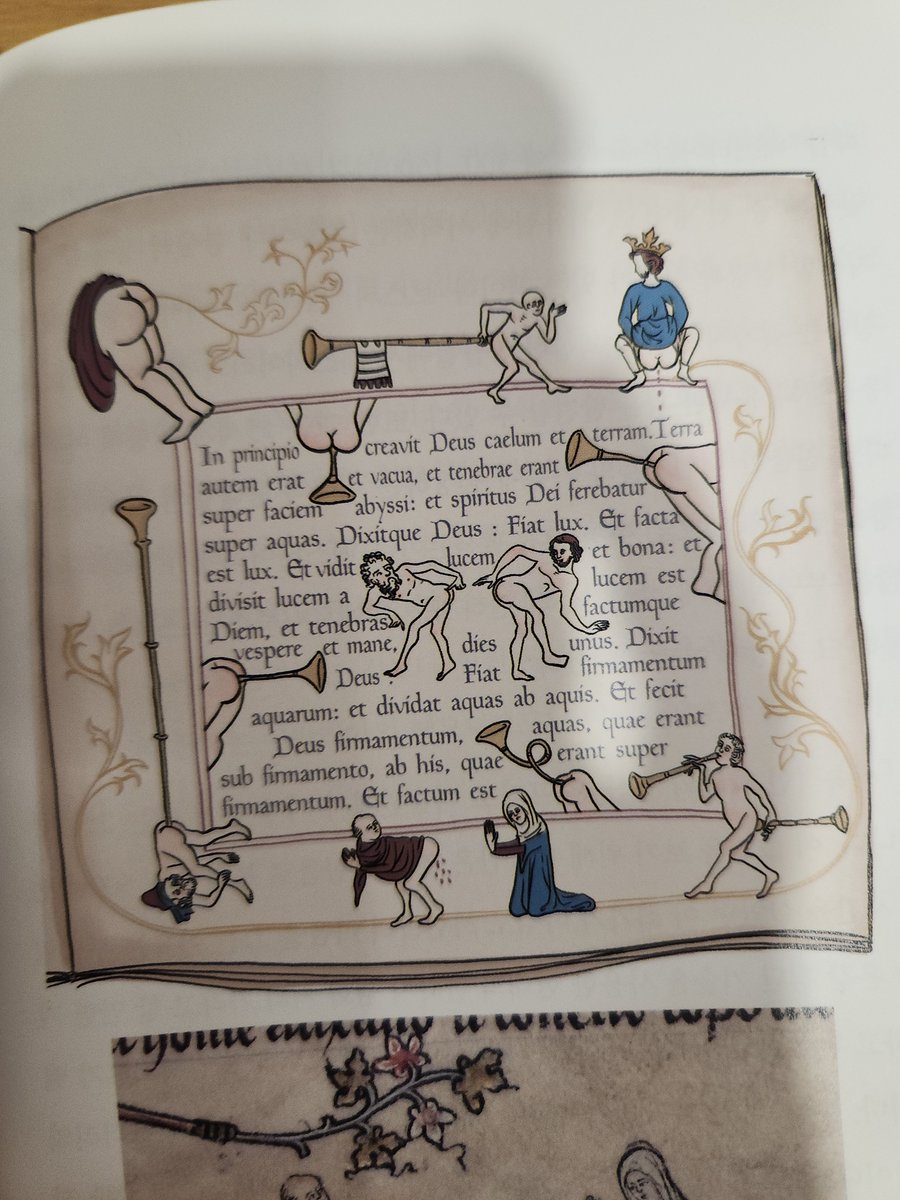 In principio creavit Deus caelum et terram. Terra
autem erat et vacua, et tenebrae erant
super faciem abyssi: et spiritus Dei ferebatur
super aquas. Dixitque Deus : Fiat lux. Et facta
est lux. Et vidit lucem et bona: et
divisit lucem a lucem est
Diem, et tenebras factumque
vespere et mane, dies unus. Dixit
Deus : Fiat firmamentum
aquarum: et dividat aquas ab aquis. Et fecit
Deus firmamentum, aquas, quae erant
sub firmamento, ab his, quae erant super
firmamentum. Et factum est